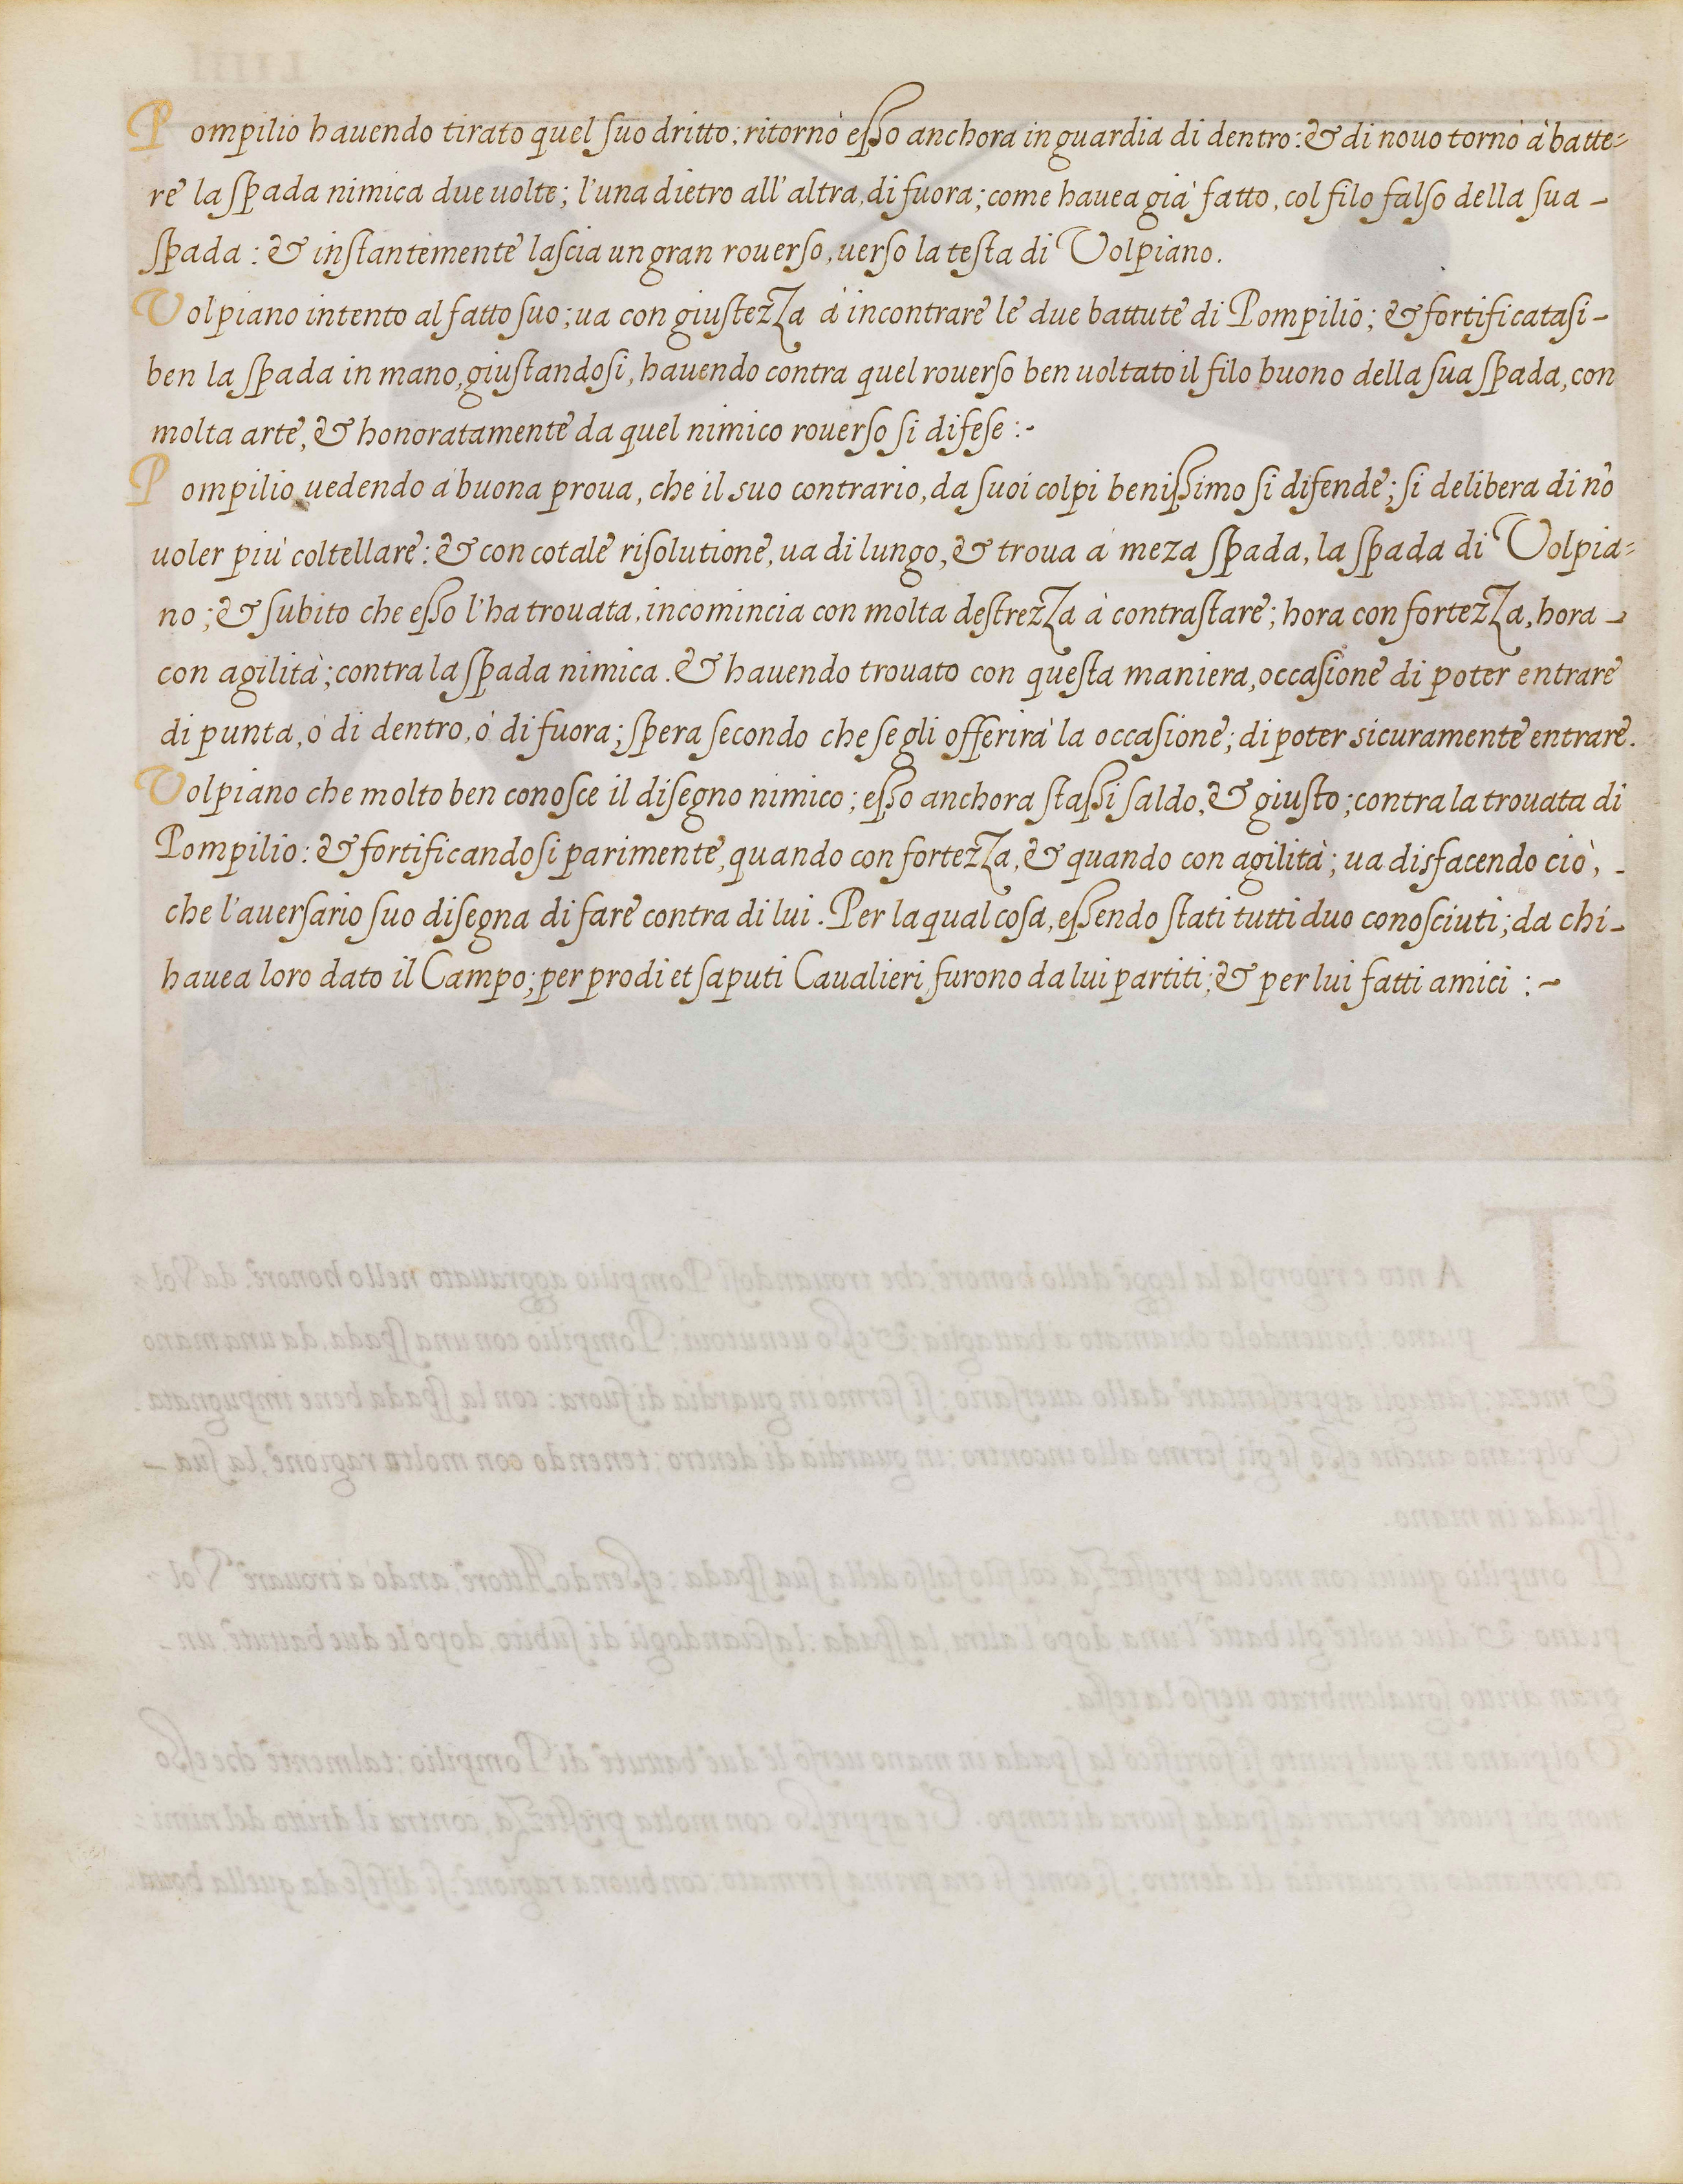 Pompilio hauendo tirato quel suo dritto; ritornò esso anchora in guardia di dentro: & di nouo tornò à batte=
re la spada nimica due uolte; l'una dietro all'altra, di fuora; come hauea già fatto, col filo falso della sua -
spada: & instantemente lascia un gran rouerso, uerso la testa di Volpiano.
Volpiano intento al fatto suo; ua con giustezza à incontrare le due battute di Pompilio; & fortificatasi -
ben la spada in mano, giustandosi, hauendo contra quel rouerso ben uoltato il filo buono della sua spada, con
molta arte, & honoratamente da quel nimico rouerso si difese :-
Pompilio uedendo à buona proua, che il suo contrario, da suoi colpi benissimo si difende; si delibera di nõ
uoler più coltellare: & con cotale risolutione, ua di lungo, & troua à meza spada, la spada di Volpia=
no; & subito che esso l'ha trouata, incomincia con molta destrezza à contrastare; hora con fortezza, hora -
con agilità; contra la spada nimica. & hauendo trouato con questa maniera, occasione di poter entrare
di punta, ò di dentro, ò di fuora; spera secondo che se gli offerirà la occasione; di poter sicuramente entrare.
Volpiano che molto ben conosce il disegno nimico; esso anchora stassi saldo, & giusto; contra la trouata di
Pompilio: & fortificandosi parimente, quando con fortezza, & quando con agilità; ua disfacendo ciò, -
che l'auersario suo disegna di fare contra di lui. Per la qual cosa, essendo stati tutti duo conosciuti; da chi -
hauea loro dato il Campo; per prodi et saputi Caualieri, furono da lui partiti; & per lui fatti amici :-